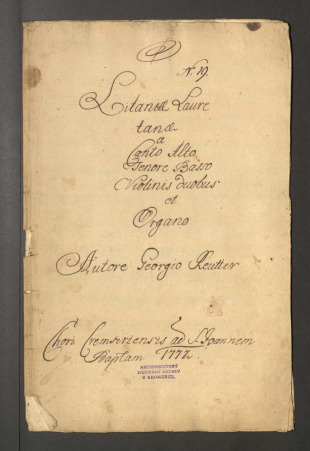 N. 19.
Litaniæ Laure
tanæ
a
Canto Alto
Tenore Basso
Violinis duobus
et
Organo
Autore Georgio Reutter
Chori Cremsiriensis ad S. Joannem
Baptam 1772.
ARCIBISKUPSKÝ
HUDEBNÍ ARCHIV
V KROMĚŘÍŽI,